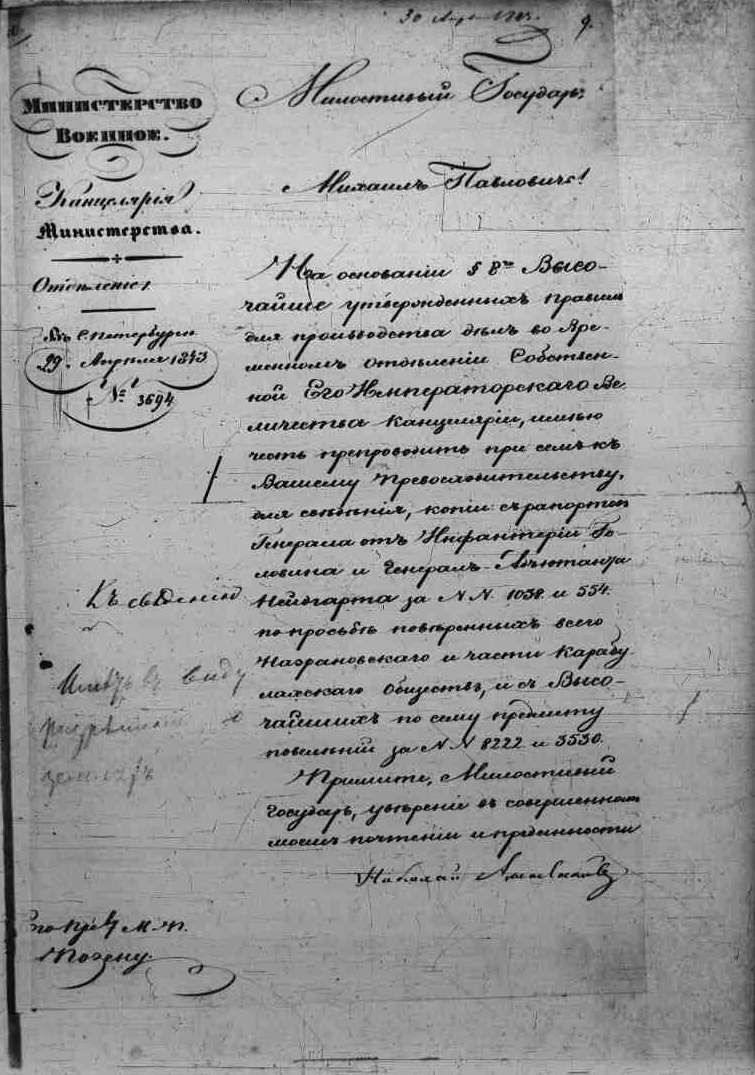 30 Апр. 1843.
9.
Министерство
Военное.
Канцелярія
Министерства.
Отдѣленіе 1
Въ С. Петербургѣ
29. Апрѣля 1843
№ 3694
Милостивый Государь,
Михаилъ Павловичъ!
На основаніи § 8го Высо-
чайше утвержденныхъ правилъ
для производства дѣлъ во Вре-
менномъ отдѣленіи Собствен-
ной Его Императорскаго Ве-
личества Канцеляріи, имѣю
честь препроводить при семъ къ
Вашему Превосходительству,
для свѣдѣнія, копіи съ рапортовъ
Генерала отъ Инфантеріи Го-
ловина и Генералъ-Адъютанта
Нейдгарта за N.N. 1038. и 554.
по просьбѣ повѣренныхъ всего
Назрановскаго и части Карабу-
лакскаго Обществъ, и съ Высо-
чайшихъ по сему предмету
повелѣній за N N 8222 и 3530.
Примите, Милостивый
Государь, увѣреніе въ совершенномъ
моемъ почтеніи и преданности
Къ сведенію
Имѣть въ виду
Его Пре М. П.
Позену.